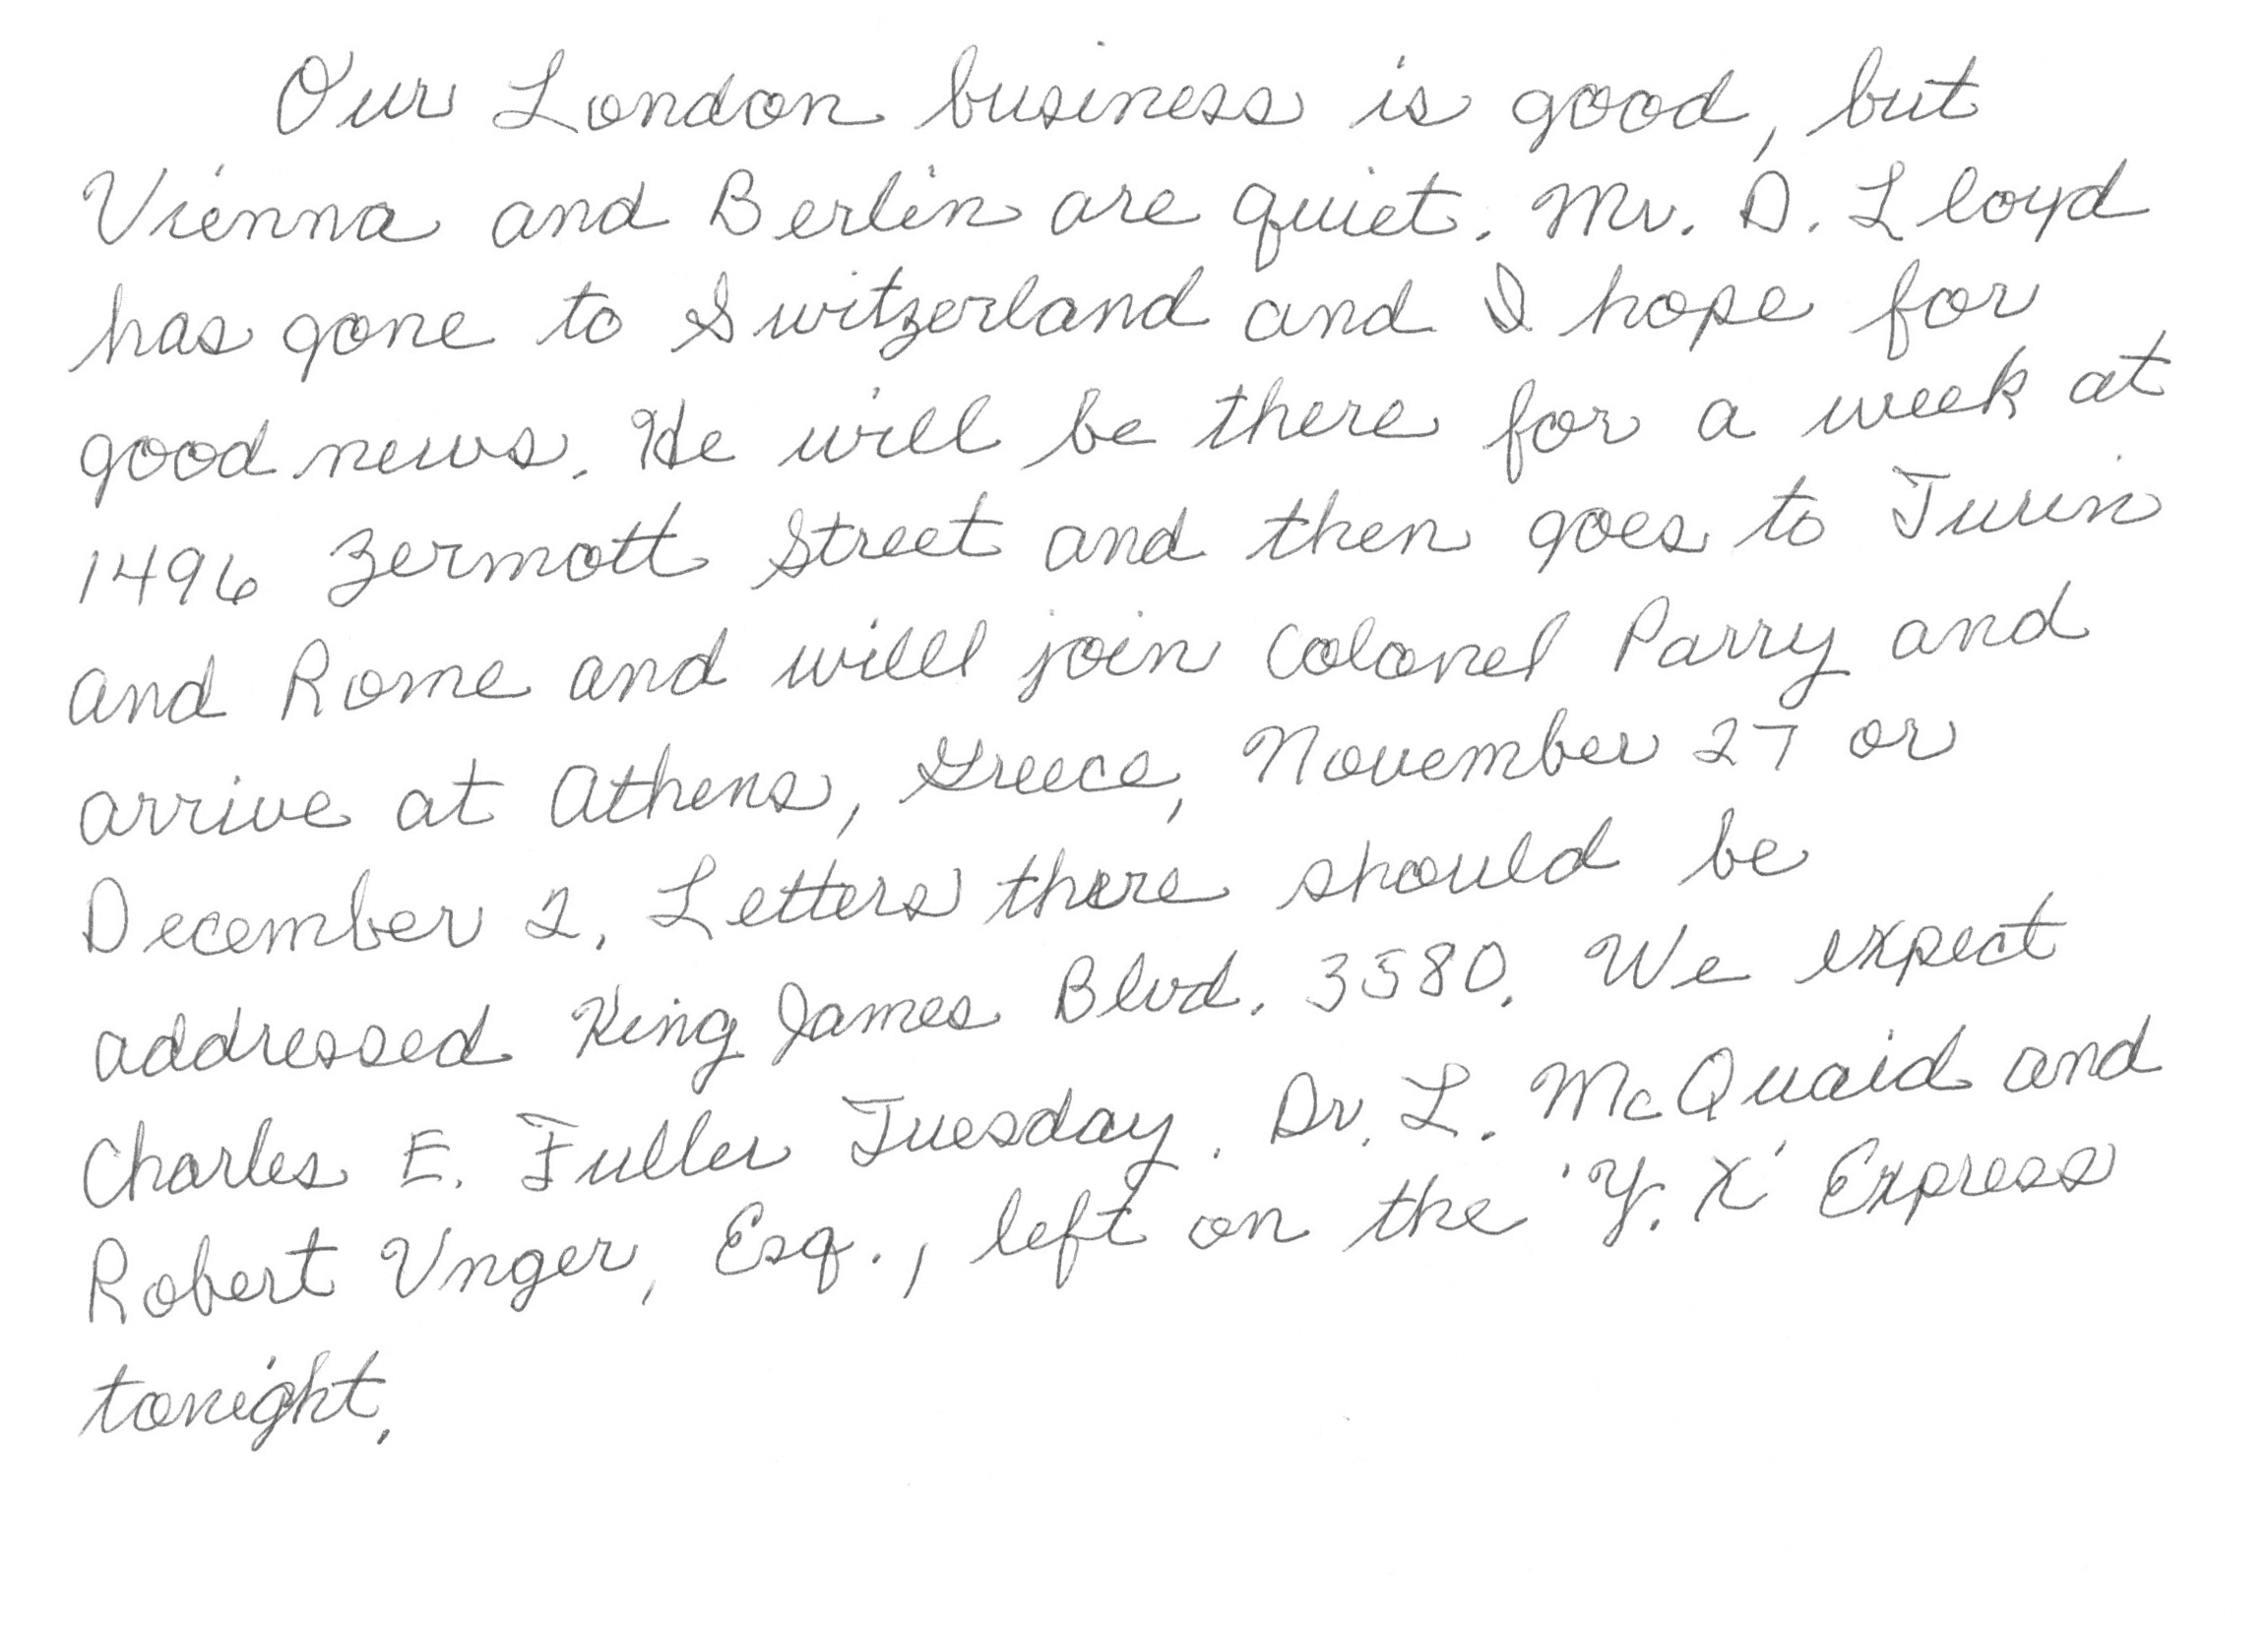 Our London business is good, but
Vienna and Berlin are quiet. Mr. D. Lloyd
has gone to Switzerland and I hope for
good news. He will be there for a week at
1496 Zermott Street and then goes to Turin
and Rome and will join Colonel Parry and
arrive at Athens, Greece, November 27 or
December 2. Letters there should be
addressed King James Blvd. 3580. We expect
Charles E. Fuller Tuesday. Dr. L. McQuaid and
Robert Unger, Esq., left on the 'Y. X' Express
tonight.